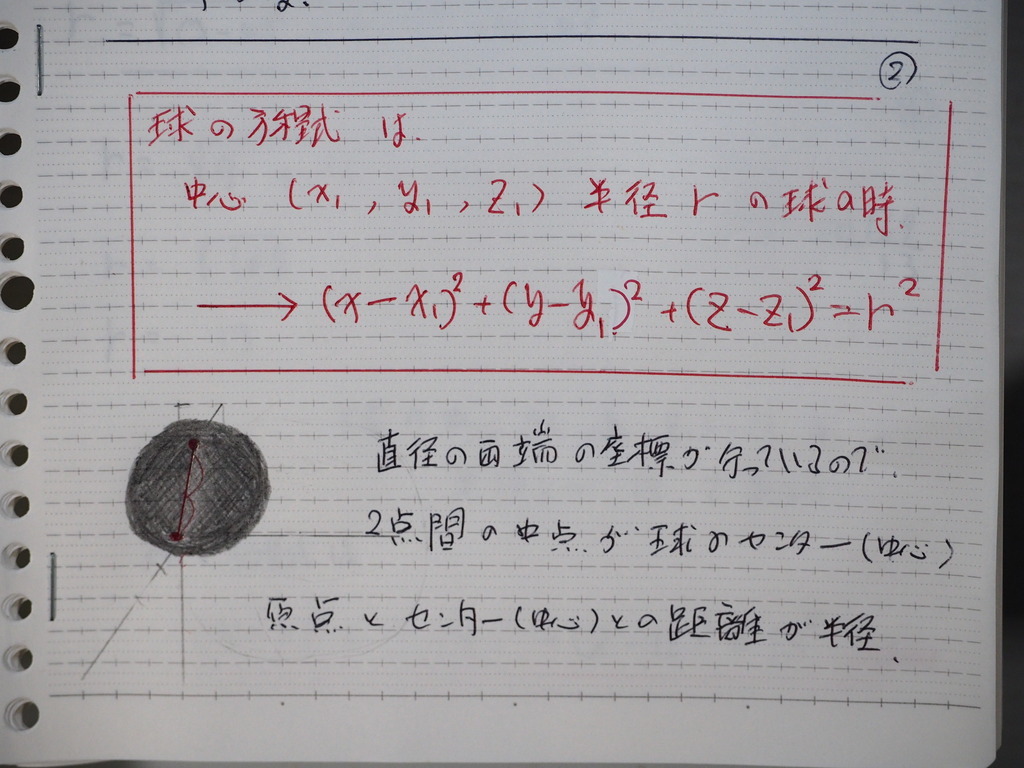 ②
球の方程式は.
中心 (x₁, y₁, z₁) 半径 r の球の時.
→ (x-x₁)²+(y-y₁)²+(z-z₁)²=r²
直径の両端の座標が行っているので.
2点間の中点が球のセンター(中心)
原点とセンター(中心)との距離が半径.